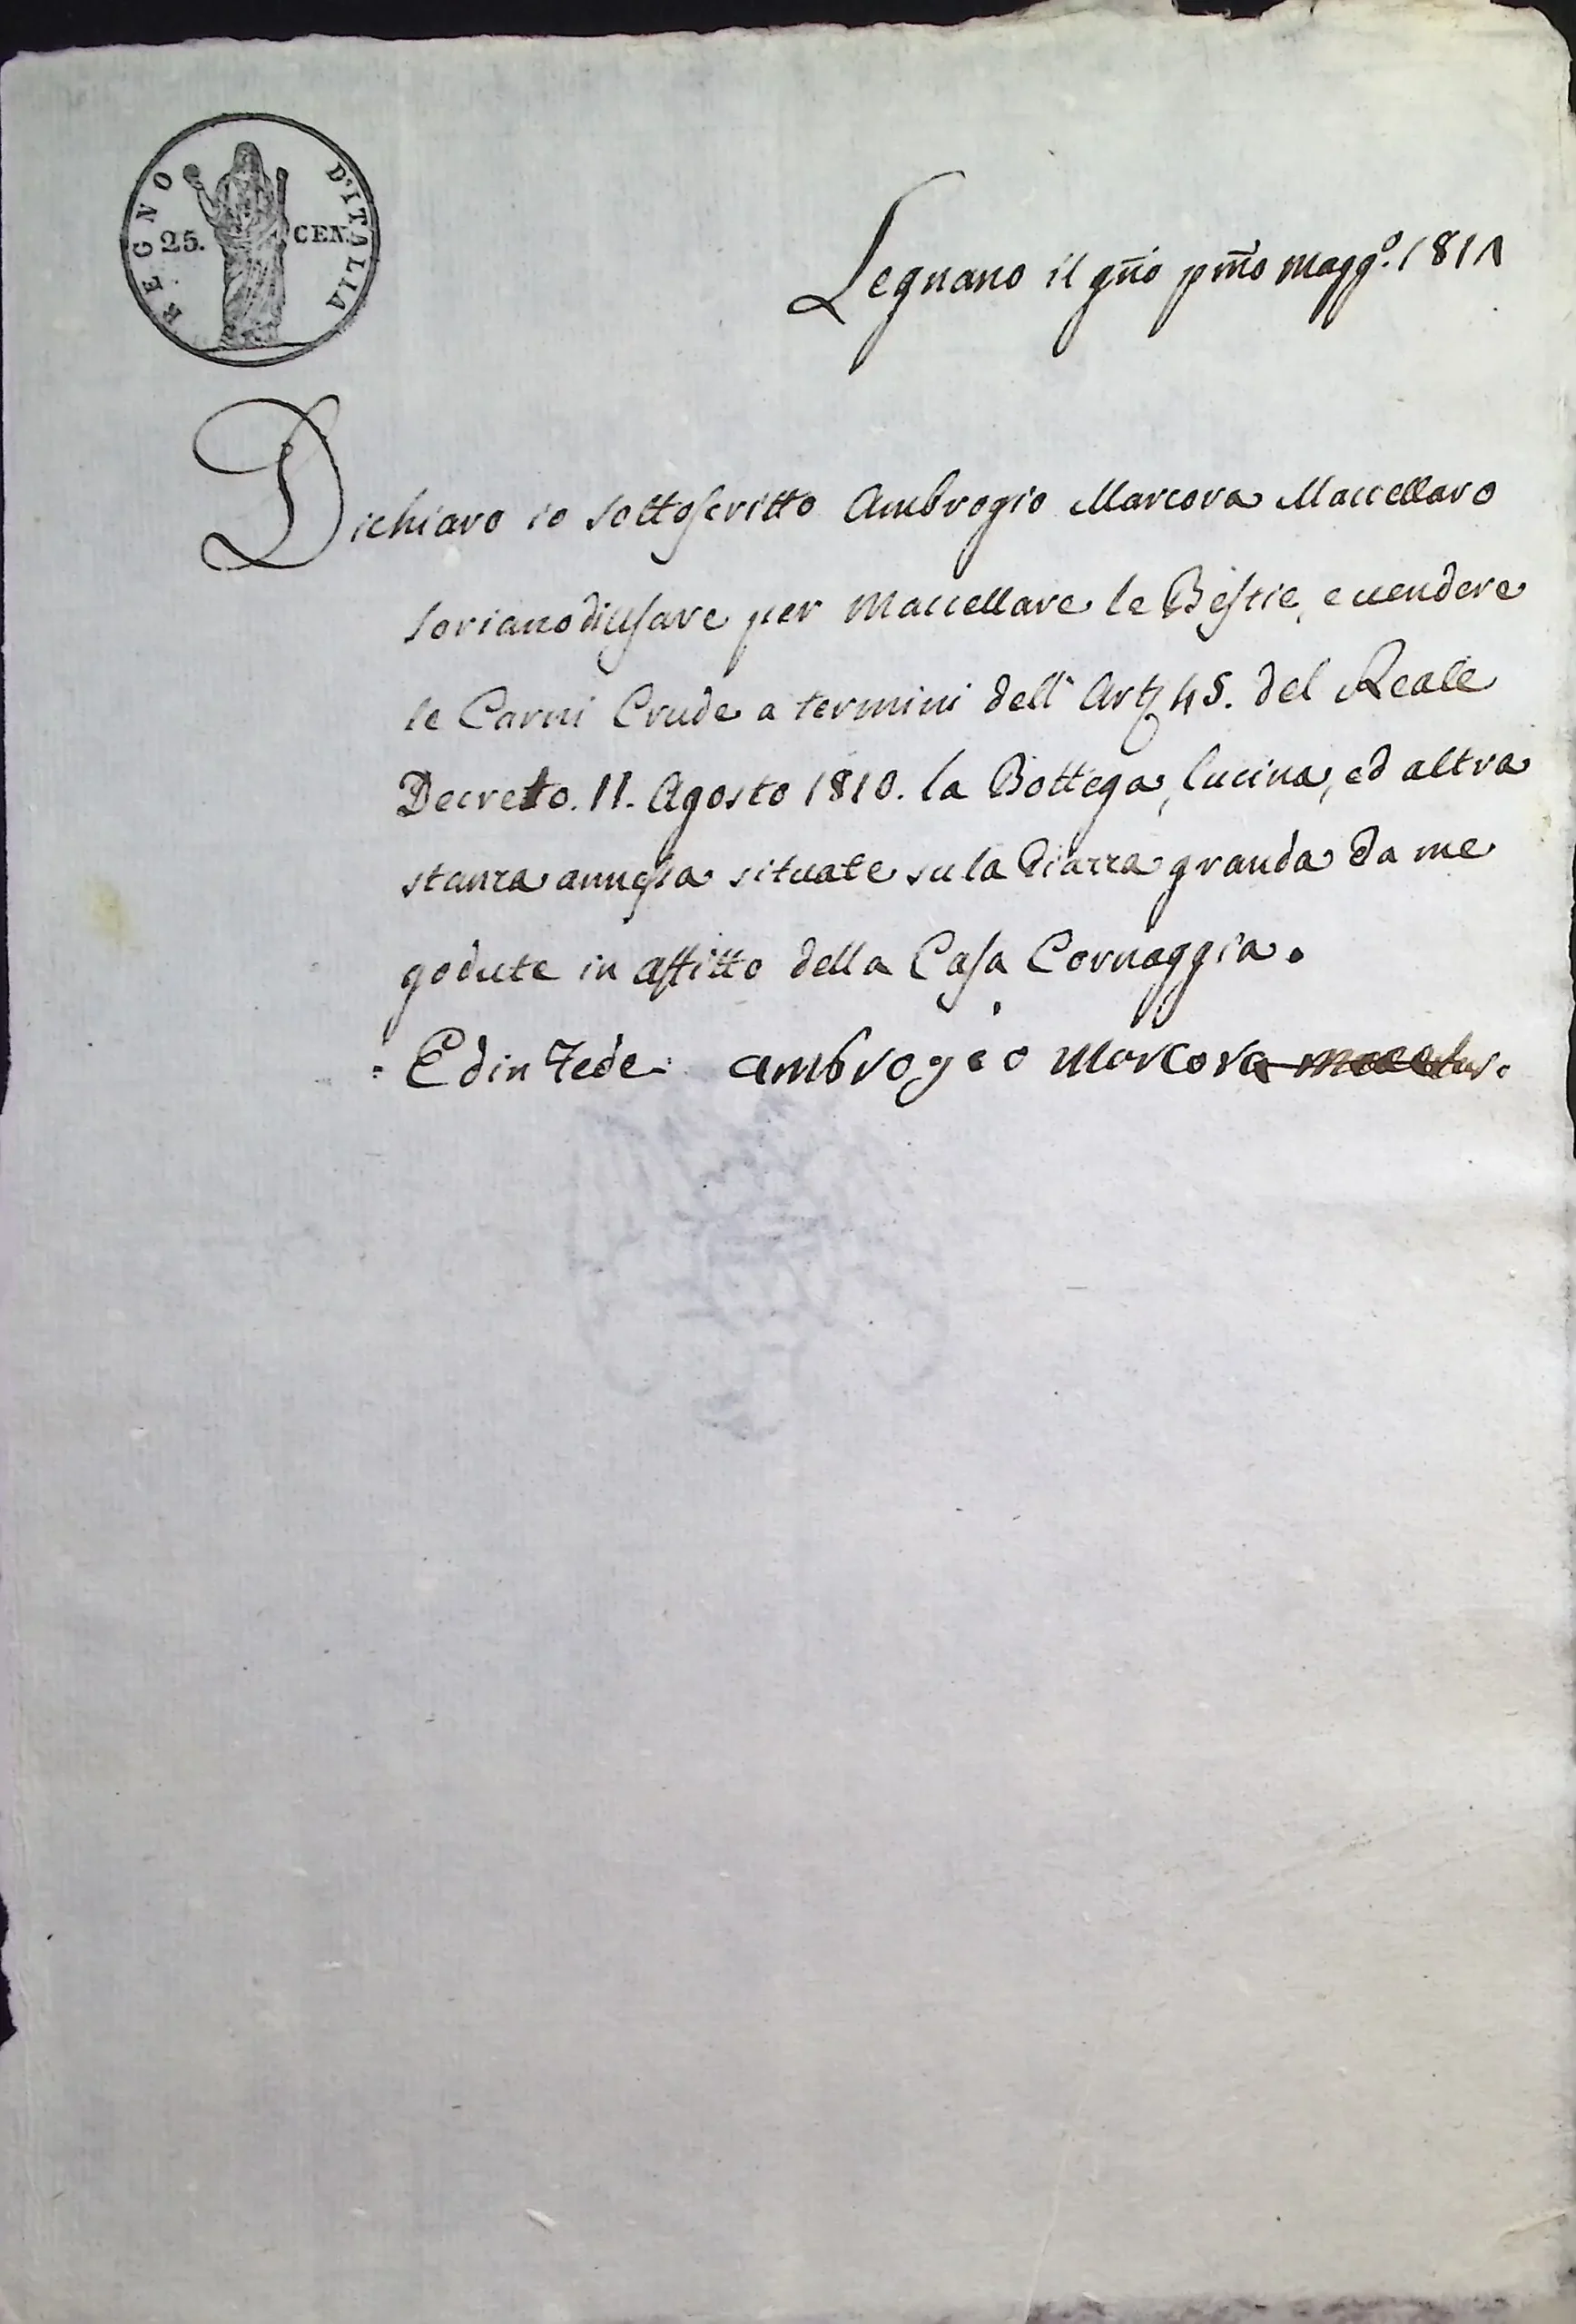 REGNO D'ITALIA
25. CEN.
Legnano il gño pmo magg.º 1811
Dichiaro io sottoscritto Ambrogio Marcora Maccellaro
soriano di usare per Maccellare le Bestie, e uendere
le Carni Crude a termini dell' Art. 45. del Reale
Decreto. 11. Agosto 1810. la Bottega, Cucina, ed altra
stanza annessa situate su la Piazza granda da me
godute in affitto della Casa Cornaggia.
Ed in Fede: ambrogio Morcora